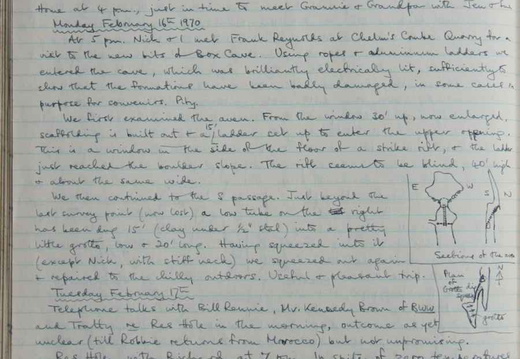 Home at 4 pm, just in time to meet Grannie & Grandpa with Jen &
Monday February 16th 1970
At 5 pm. Nick & I met Frank Reynolds at Chelm's Combe Quarry for a
visit to the new bits of Box Cave. Using ropes & aluminium ladders we
entered the cave, which was brilliantly electrically lit, sufficiently to
show that the formations have been badly damaged, in some cases
purpose for souvenirs. Pity.
We first examined the aven. From the window 30' up, now enlarged,
scaffolding is built out & a 15' ladder set up to enter the upper opening.
This is a window in the side of the floor of a strike rift, & the ladder
just reached the boulder slope. The rift seems to be blind, 40' high
& about the same wide.
We then continued to the S passage. Just beyond the
last survey point (now lost) a low tube on the right
has been dug 15' (clay under ½" stal) into a pretty
little grotto, low & 20' long. Having squeezed into it
(except Nick, with stiff neck) we squeezed out again
& repaired to the chilly outdoors. Useful & pleasant trip.
E W S N
Sections of the
Plan of Grotto dig
squeeze
grotto
N
Tuesday February 17th
Telephone talks with Bill Rennie, Mr. Kennedy Brown of BWW
and Tratty re Res Hole in the morning, outcome as yet
unclear (till Robbie returns from Morocco) but not unpromising.
Res Hole with Richard at 7 pm. In spite of